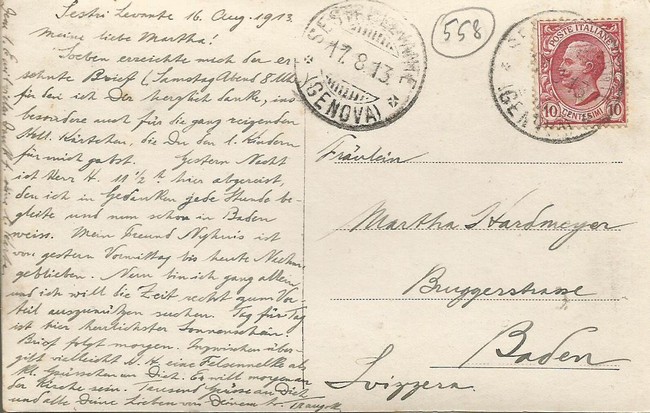 Sestri Levante 16. Aug. 1913.
Meine liebe Martha!
Soeben erreichte mich der er-
sehnte Brief (Samstag Abend 8 Uhr
für den ich Dir herzlich danke, ins
besondere auch für die ganz reizenden
Kärtchen, die Du den l. Kindern
für mich gabst. Gestern Nacht
ist Herr H. 11 ½ h hier abgereist,
den ich in Gedanken jede Stunde be-
gleite und nun schon in Baden
weiss. Mein Freund ist
von gestern Vormittag bis heute Nachm.
geblieben. Nun bin ich ganz allein,
und ich will die Zeit recht zum Vor-
teil auszunützen suchen. Tag für Tag
ist hier herrlichster Sonnenschein.
Brief folgt morgen. Inzwischen über-
gibt vielleicht H. H. eine Felsennelke als
kl. Grüsschen an Dich. Es will morgen an
der Kirche sein. Tausend Grüsse an Dich
und alle Deine Lieben von Deinem tr. Traugott
SESTRI LEVANTE
17.8.13
(GENOVA)
558
(GENOVA)
POSTE ITALIANE
10 CENTESIMI 10
Fräulein
Martha Hardmeyer
Bruggerstrasse
Baden
Svizzera.